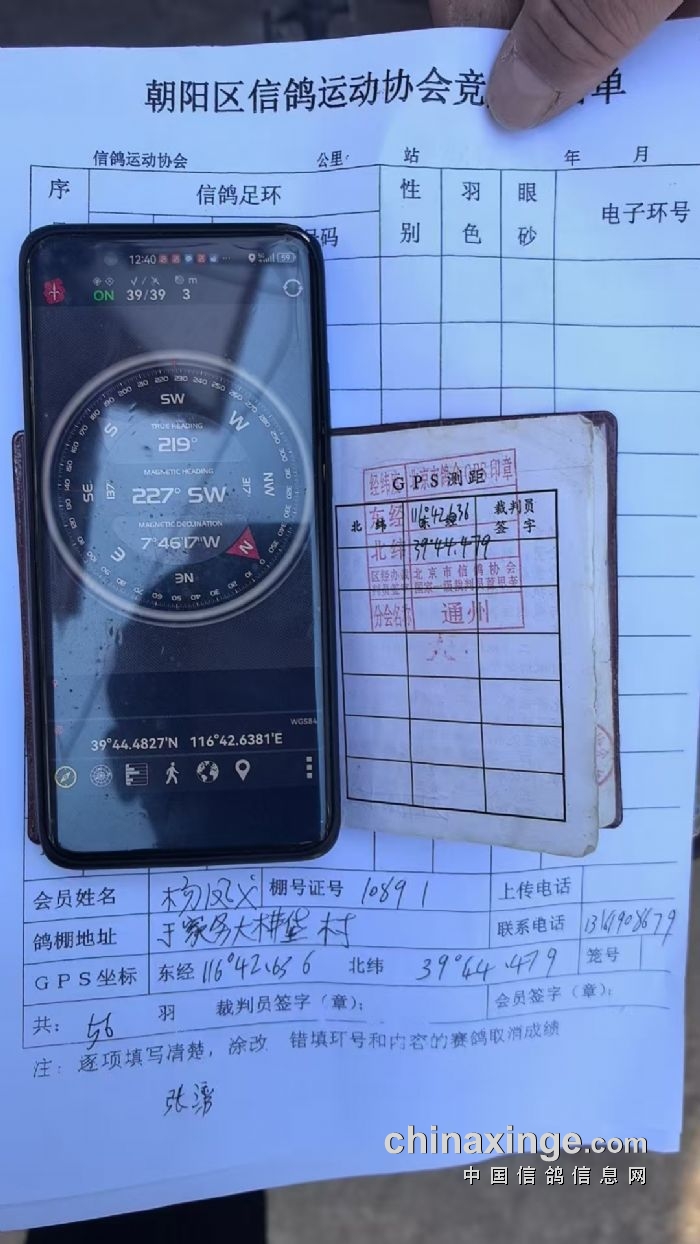 朝阳区信鸽运动协会竞 单
信鸽运动协会 公里 站 年 月
序 信鸽足环 性别 羽色 眼砂 电子环号
号码
12:40 59
ON 39/39 3 m
SW
TRUE HEADING
219°
MAGNETIC HEADING
137 227° SW 317
MAGNETIC DECLINATION
7°46'17"W
S W SE NW E N NE
WGS84
39°44.4827'N 116°42.6381'E
经纬度 北京市鸽会GPS印章
GPS测距
东经 116°42.636
北纬 裁判员签字
北纬 39°44.479
区经办裁判员签字 北京市信鸽协会
分会名称 通州
会员姓名 杨凤义 棚号证号 10891 上传电话
鸽棚地址 于家务大耕垡村 联系电话
GPS坐标 东经 116°42.636 北纬 39°44.479 笼号
共: 56 羽 裁判员签字（章）; 会员签字（章）;
注: 逐项填写清楚，涂改 错填环号和内容的赛鸽取消成绩
chinaxinge.com
中国信鸽信息网